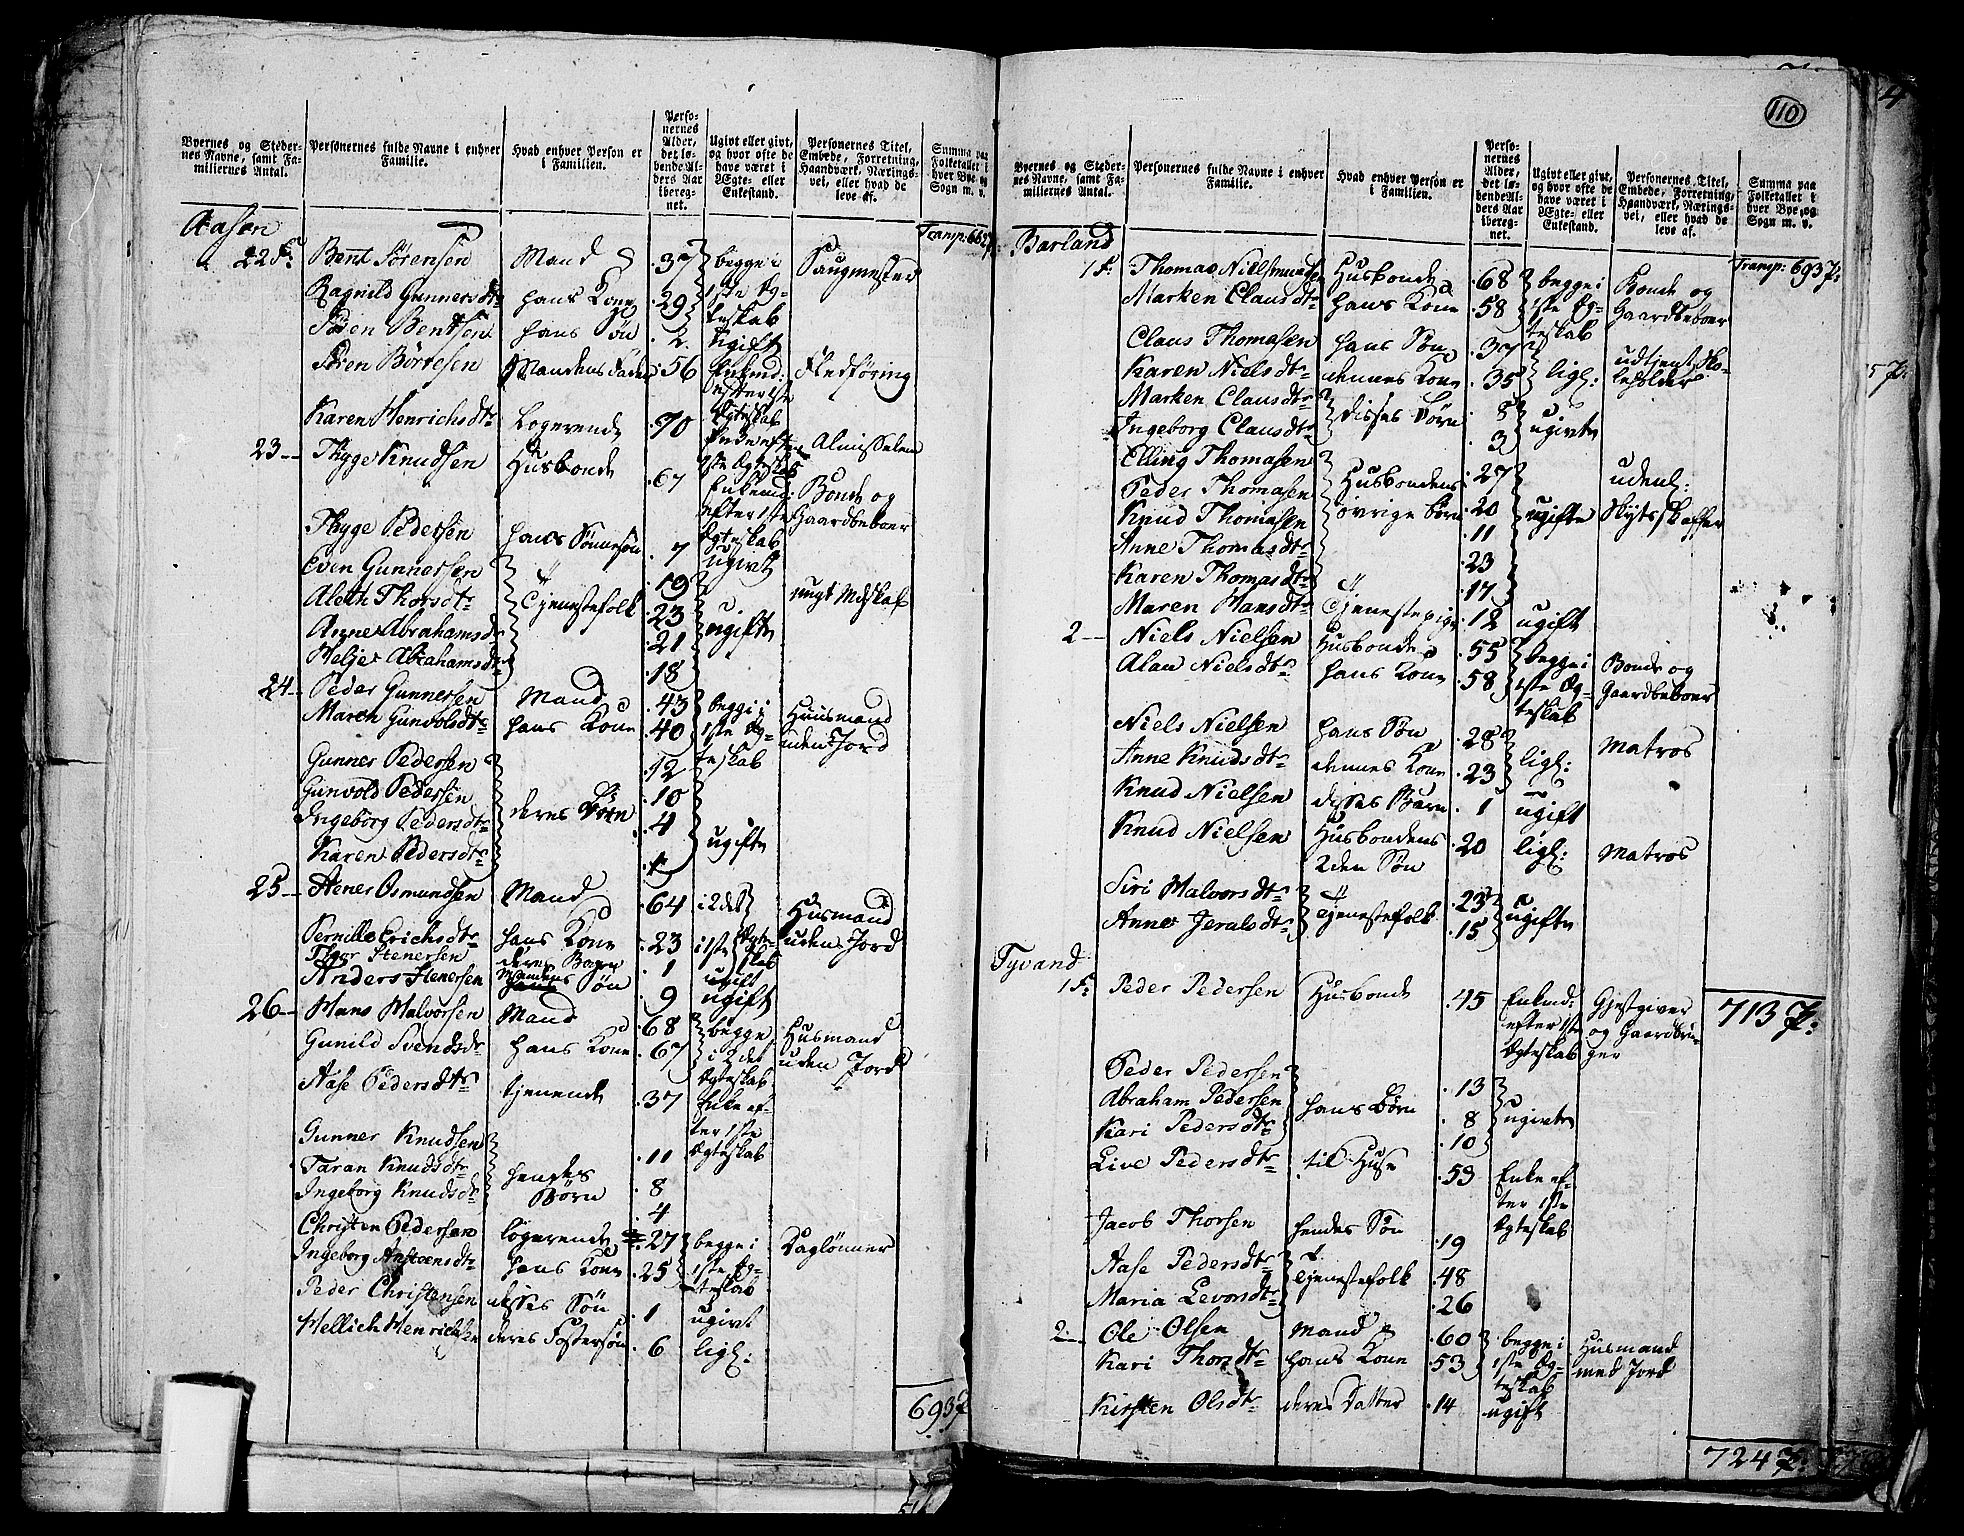 110
Byernes og Steder-nes Navne, samt Fa-miliernes Antal.
Personernes fulde Navne i enhver Familie.
Hvad enhver Person er i Familien.
Perso-nernes Alder, det lø-bende Al-ders Aar iberegnet.
Ugivt eller givt, og hvor ofte de have været i Ægte- eller Enkestand.
Personernes Titel, Embede, Forretning, Haandværk, Nærings-vei, eller hvad de leve af.
Summa paa Folketallet i hver Bye og Sogn m. v.
Aasen
22 F: Bent Sörensen Mand 37 begge i 1ste Eg-teskab Saugmester
Ragnild Gunnersdtr hans Kone 29
Sören Bentsen hans Sön 2 ugift
Sören Börresen Mandens Fader 56 Enkmd: efter 1ste Egteskab Fledföring
Karen Henrichsdtr Logerende 70 Enke efter 1ste Egteskab Almisselem
23 Thyge Knudsen Husbonde 67 Enkemd: efter 1ste Egteskab Bonde og Gaardbeboer
Thyge Pedersen hans Sönnesön 7 ugivt
Even Gunnersen 19
Aleth Thorsdtr Tjenestefolk 23 ugifte
Anne Abrahamsdtr 21
Helje Abrahamsdtr 18
24 Peder Gunnersen Mand 43 begge i 1ste Eg-teskab Huusmand uden Jord
Maren Gunvolsdtr hans Kone 40
Gunner Pedersen 12
Gunvold Pedersen deres Börn 10
Ingeborg Pedersdtr 4 ugifte
Karen Pedersdtr 1
25 Stener Osmundsen Mand 64 i 2det Husmand uden Jord
Pernille Erichsdtr hans Kone 23 i 1ste Egte-skab
Thor Stenersen deres Barn 1 ugift
Anders Stenersen Mandens Sön 9 ugift
26 Hans Halvorsen Mand 68 begge i 2det Egteskab Husmand uden Jord
Gunild Svendsdr hans Kone 67
Aase Pedersdtr tjenende 37 Enke ef-ter 1ste Egteskab
Gunner Knudsen 11
Taran Knudsdtr hendes Börn 8
Ingeborg Knudsdtr 4
Christen Pedersen logerende 27 begge i 1ste Eg-teskab Daglönner
Ingeborg Anstensdtr hans Kone 25
Peder Christensen disses Sön 1 ugivt
Hellich Henrichsen deres Fostersön 6 ligl:
693 P
Byernes og Steder-nes Navne, samt Fa-miliernes Antal.
Personernes fulde Navne i enhver Familie.
Hvad enhver Person er i Familien.
Perso-nernes Alder, det lø-bende Al-ders Aar iberegnet.
Ugivt eller givt, og hvor ofte de have været i Ægte- eller Enkestand.
Personernes Titel, Embede, Forretning, Haandværk, Nærings-vei, eller hvad de leve af.
Summa paa Folketallet i hver Bye, og Sogn m. v.
Transp: 693 P:
Barland
1 F: Thomas Nielsen Husbonde 68 begge i 1ste Eg-teskab Bonde og Gaardbeboer
Marken Clausdtr hans Kone 58
Claus Thomasen hans Sön 37 ligl: udtjent Sko-leholder
Karen Nielsdtr dennes Kone 35
Marken Clausdtr disses Börn 8 ugivte
Ingeborg Clausdtr 3
Elling Thomasen Husbondens övrige Börn 27 ugifte udenl:
Peder Thomasen 20 Skytsskaffer
Knud Thomasen 11
Anne Thomasdtr 23
Karen Thomasdtr 17
Maren Hansdtr Tjenestepige 12 ugift
2 Niels Nielsen Husbonde 55 begge i 1ste Eg-teskab Bonde og Gaardbeboer
Alau Nielsdtr hans Kone 58
Niels Nielsen hans Sön 28 ligl: Matros
Anne Knudsdtr dennes Kone 23
Knud Nielsen disses Barn 1 ugift
Knud Nielsen Husbondens 2den Sön 20 ligl: Matros
Siri Halvorsdtr Tjenestefolk 23 ugifte
Anne Jeralsdtr 15
713 P:
Tyvand
1 F: Peder Pedersen Husbonde 45 Enkmd: efter 1ste Egteskab Gjestgiver og Gaardbru-ger
Peder Pedersen 13
Abraham Pedersen hans Börn 8 ugivte
Kari Pedersdtr 10
Live Pedersdtr til Huse 59 Enke ef-ter 1ste Egteskab
Jacob Thorsen hendes Sön 19
Aase Pedersdtr Tjenestefolk 48
Maria Levorsdtr 26
2 Ole Olsen Mand 60 begge i 1ste Eg-teskab Husmand med Jord
Kari Thorsdtr hans Kone 53
Kirsten Olsdtr deres Datter 14 ugift
724 P: